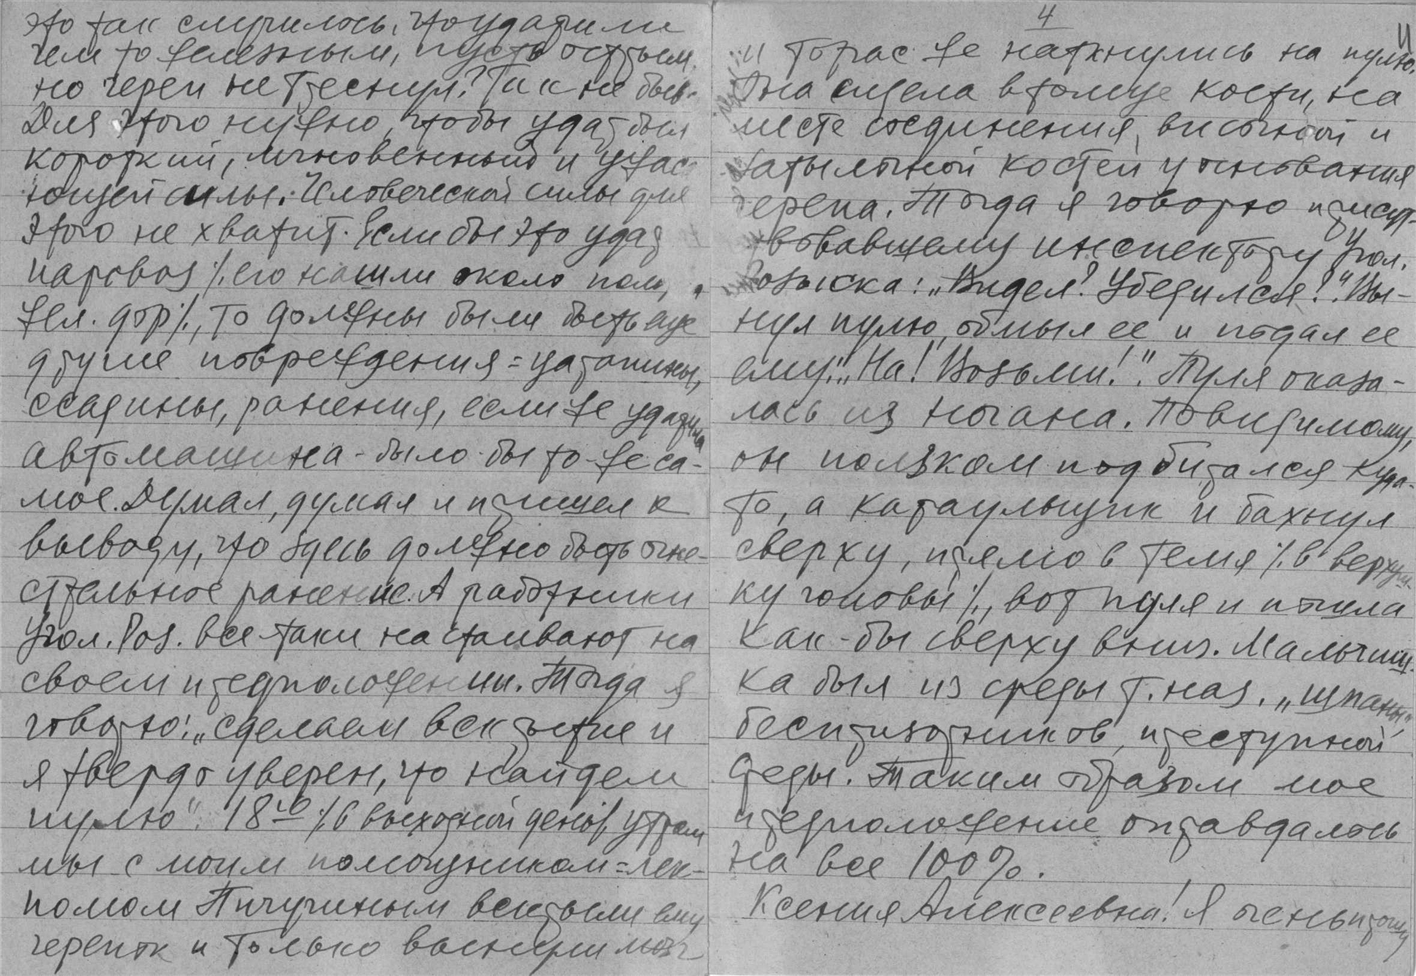 это так случилось, что ударили
чем то железным, пусть острым,
но череп не треснул? Так не быв-
Для этого нужно, чтобы удар был
короткий, мгновенный и ужас
ющей силы. Человеческой силы для
этого не хватит. Если бы это удар
паровоз /. его нашли около пол,
жел. дор /., то должны были быть еще
другие повреждения = царапины,
ссадины, ранения, если же ударила
автомашина - было-бы то-же са-
мое. Думал, думал и пришел к
выводу, что здесь должно быть огне-
стрельное ранение. А работники
Угол. Роз. все таки настаивают на
своем предположении. Тогда я
говорю: „сделаем вскрытие и
я твердо уверен, что найдем
пулю". 18го /. в выходной день /. утром
мы с моим помощником = лек-
помом Пичугиным вскрыли ему
черепок и только вынули мозг
4
11
и торас же наткнулись на пулю.
Она сидела в толще кости, на
месте соединения височной и
затылочной костей у основания
черепа. Тогда я говорю присут-
ствовавшему инспектору Угол.
Розыска: „Видел? Убедился?". Вы-
нул пулю, обмыл ее и подал ее
ему: „На! Возьми!". Пуля оказа-
лась из ногана. Повидимому,
он ползком подбирался куда-
то, а караульщик и бахнул
сверху, прямо в темя /. в верхуш-
ку головы /., вот пуля и пошла
как-бы сверху вниз. Мальчиш-
ка был из среды т. наз. „шпаны",
беспризорников, преступной
среды. Таким образом мое
предположение оправдалось
на все 100%.
Ксения Алексеевна! Я очень прошу